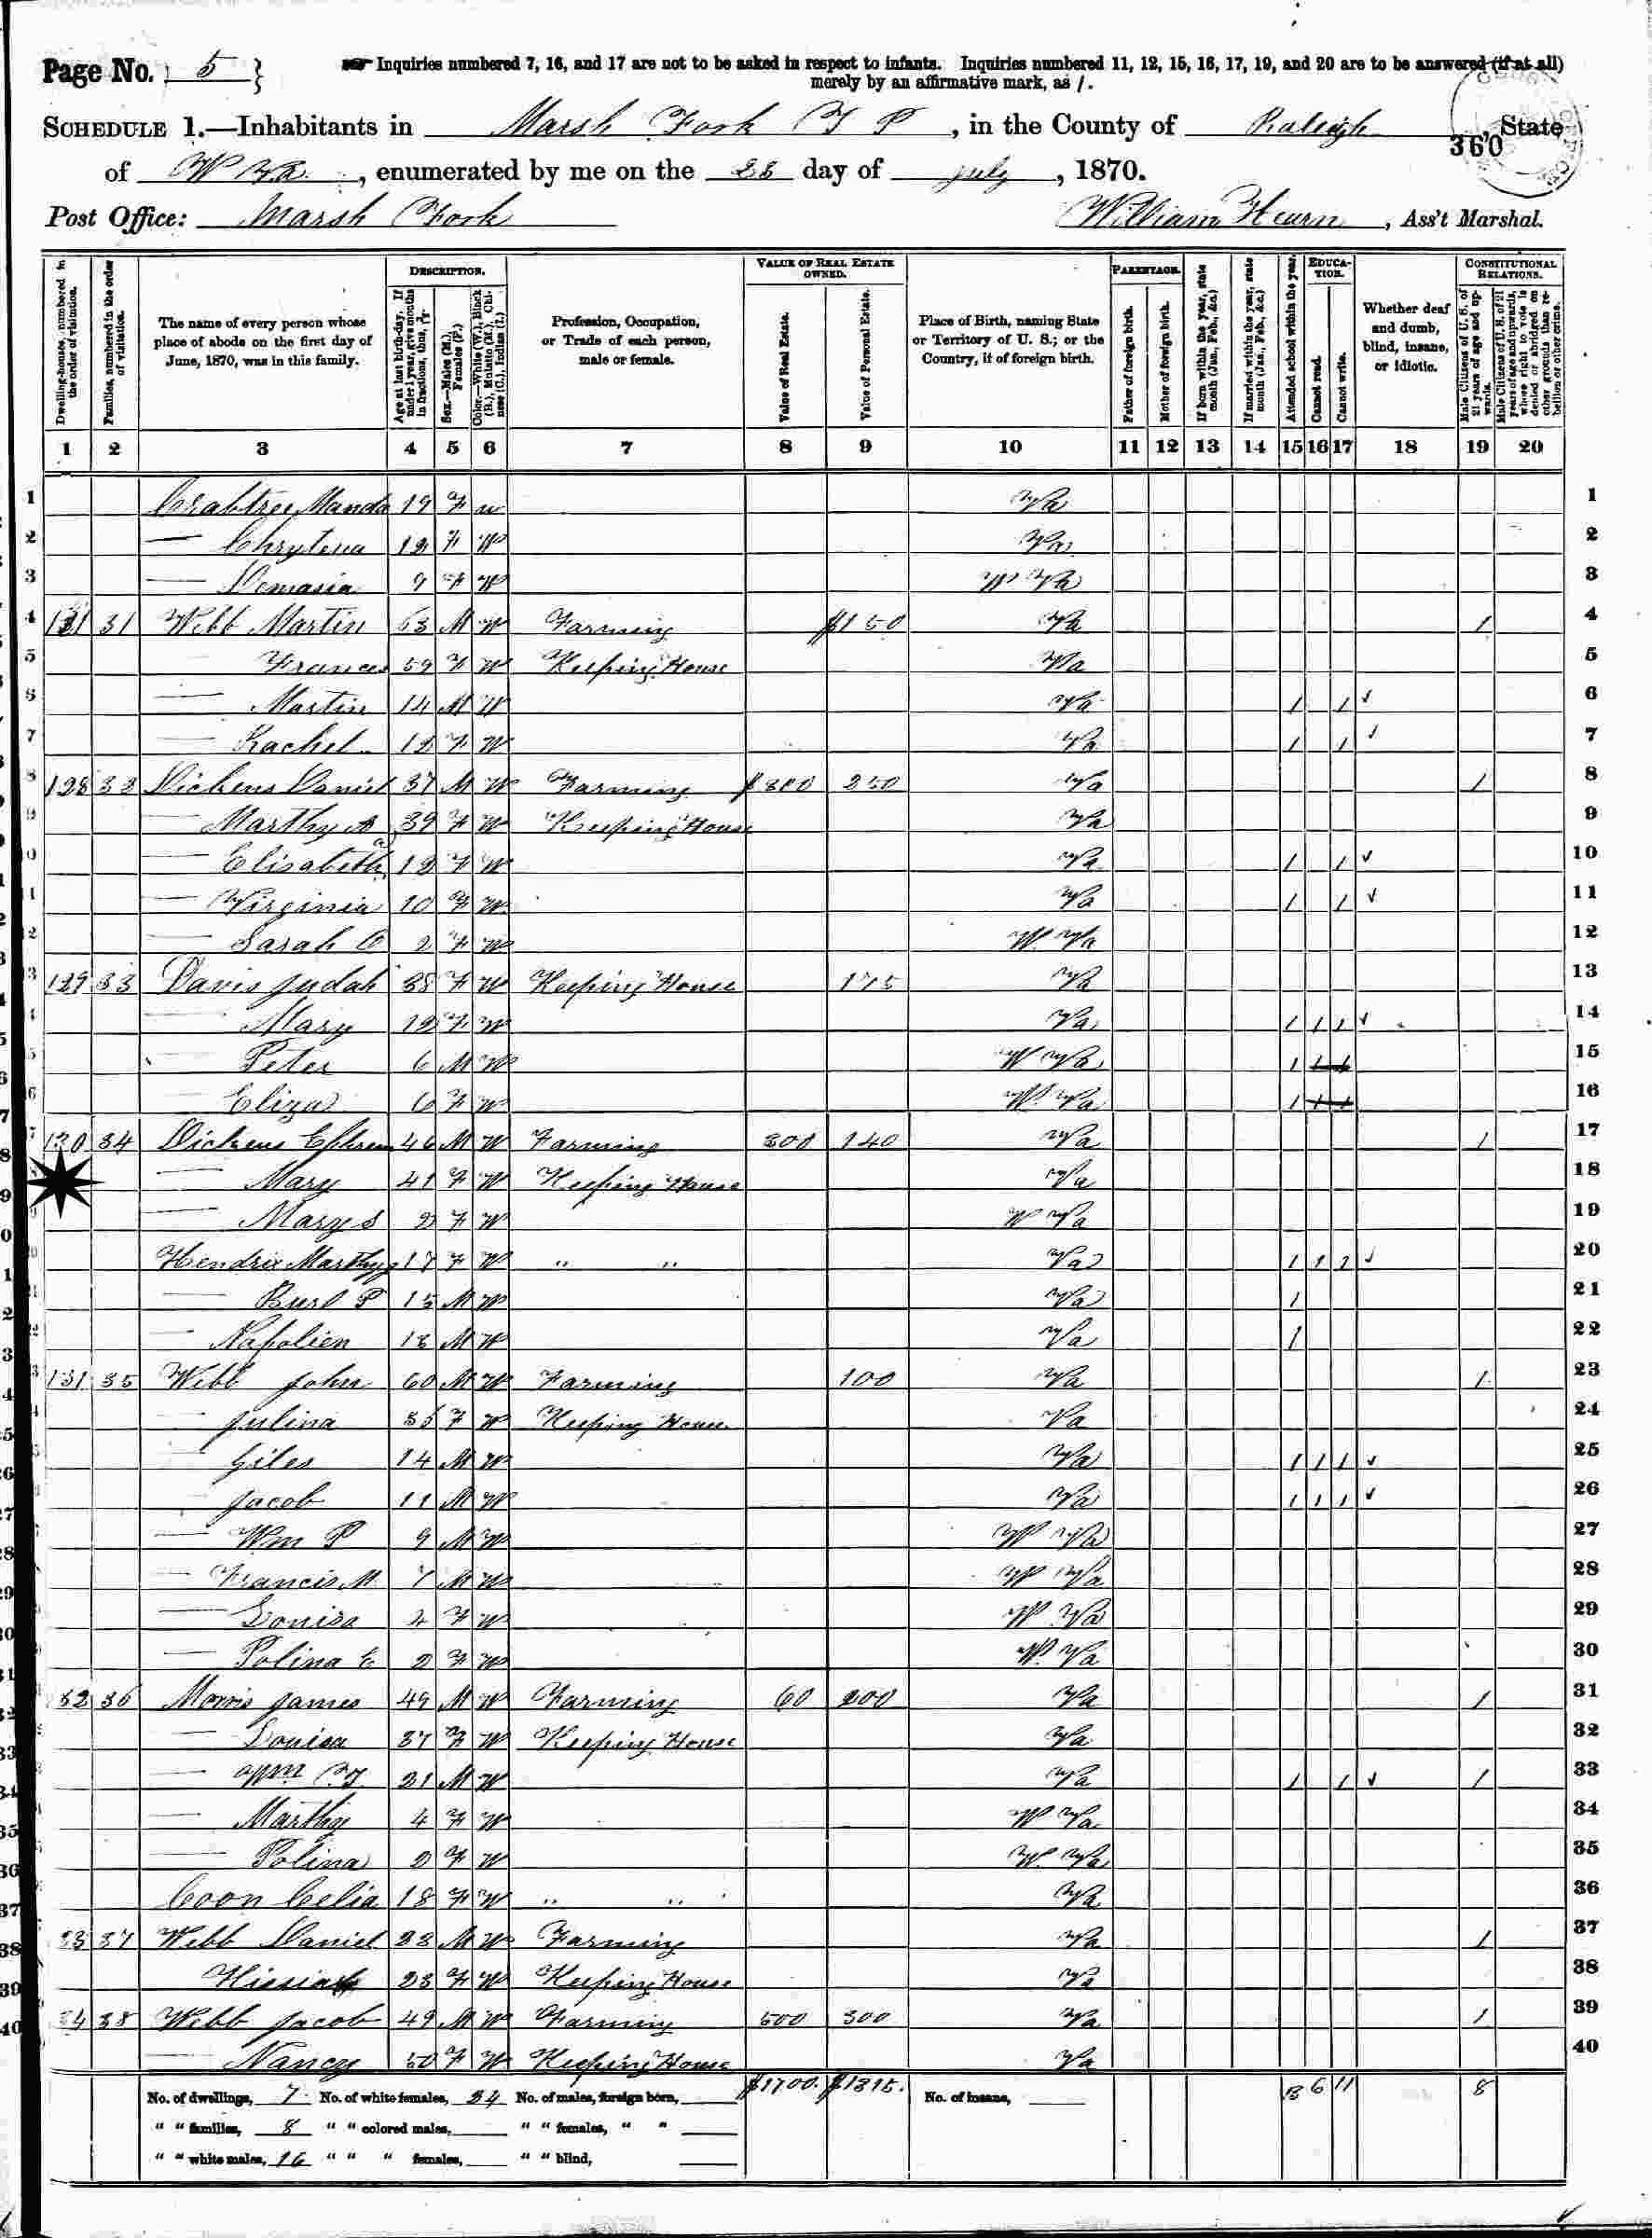 Page No. 5 } Inquiries numbered 7, 16, and 17 are not to be asked in respect to infants. Inquiries numbered 11, 12, 15, 16, 17, 19, and 20 are to be answered (if at all)
merely by an affirmative mark, as /.
SCHEDULE 1.—Inhabitants in Marsh Fork T P, in the County of Raleigh, State
360
of W Va., enumerated by me on the 28 day of July, 1870.
Post Office: Marsh Fork William Hearn, Ass't Marshal.
Dwelling-houses, numbered in the order of visitation.
Families, numbered in the order of visitation.
The name of every person whose place of abode on the first day of June, 1870, was in this family.
DESCRIPTION.
Age at last birth-day. If under 1 year, give months in fractions, thus,
Sex.—Males (M.), Females (F.)
Color.—White (W.), Black (B.), Mulatto (M.), Chinese (C.), Indian (I.)
Profession, Occupation, or Trade of each person, male or female.
VALUE OF REAL ESTATE OWNED.
Value of Real Estate.
Value of Personal Estate.
Place of Birth, naming State or Territory of U. S.; or the Country, if of foreign birth.
PARENTAGE.
Father of foreign birth.
Mother of foreign birth.
If born within the year, state month (Jan., Feb., &c.)
If married within the year, state month (Jan., Feb., &c.)
Attended school within the year.
EDUCATION.
Cannot read.
Cannot write.
Whether deaf and dumb, blind, insane, or idiotic.
CONSTITUTIONAL RELATIONS.
Male Citizens of U. S. of 21 years of age and upwards.
Male Citizens of U. S. of 21 years of age and upwards, whose right to vote is denied or abridged on other grounds than rebellion or other crime.
1 2 3 4 5 6 7 8 9 10 11 12 13 14 15 16 17 18 19 20
1 Crabtree Manda 19 F W Va 1
2 — Chrytena 12 F W Va 2
3 — 9 F W W Va 3
4 31 Webb Martin 63 M W Farming $150 Va 1 4
5 Frances 59 F W Keeping House Va 5
6 — Martin 14 M W Va / / ✓ 6
7 — Rachel 12 F W Va / / ✓ 7
8 128 32 Dickens Daniel 37 M W Farming $300 250 Va 1 8
9 — Marthy A 39 F W Keeping House Va 9
10 — Elisabeth 12 F W Va / / ✓ 10
11 — Virginia 10 F W Va / / ✓ 11
12 — Sarah O 2 F W W. Va 12
13 129 33 Davis Judah 38 F W Keeping House 175 Va 13
14 — Mary 12 F W Va / / / ✓ 14
15 — Peter 6 M W W Va / 15
16 — Eliza 6 F W W. Va / 16
17 130 34 Dickens Ephrem 46 M W Farming 300 140 Va 1 17
18 — Mary 41 F W Keeping House Va 18
19 — Mary S 2 F W W Va 19
20 Hendrix Marthy 17 F W " " Va / / / ✓ 20
21 — Burl P 15 M W Va / 21
22 — Napolien 13 M W Va / 22
23 131 35 Webb John 60 M W Farming 100 Va 1 23
24 — Julina 35 F W Keeping House Va 24
25 — Giles 14 M W Va / / / ✓ 25
26 — Jacob 11 M W Va / / / ✓ 26
27 — Wm P 9 M W W Va 27
28 — Francis M 7 M W W Va 28
29 — Louisa 4 F W W Va 29
30 — Polina E 2 F W W. Va 30
31 32 36 Morris James 49 M W Farming 60 200 Va 1 31
32 — Louisa 37 F W Keeping House Va 32
33 — 21 M W Va / / ✓ 1 33
34 — Marthy 4 F W W Va 34
35 — Polina 2 F W W. Va 35
36 Coon Celia 18 F W " " Va 36
37 33 37 Webb Daniel 23 M W Farming Va 1 37
38 23 F W Keeping House Va 38
39 34 38 Webb Jacob 49 M W Farming 500 300 Va 1 39
40 — Nancy 50 F W Keeping House Va 40
No. of dwellings, 7 No. of white females, 24 No. of males, foreign born, $1700. $1315. No. of insane, 13 6 11 8
" " families, 8 " " colored males, " " females, " "
" " white males, 16 " " " females, " " blind,